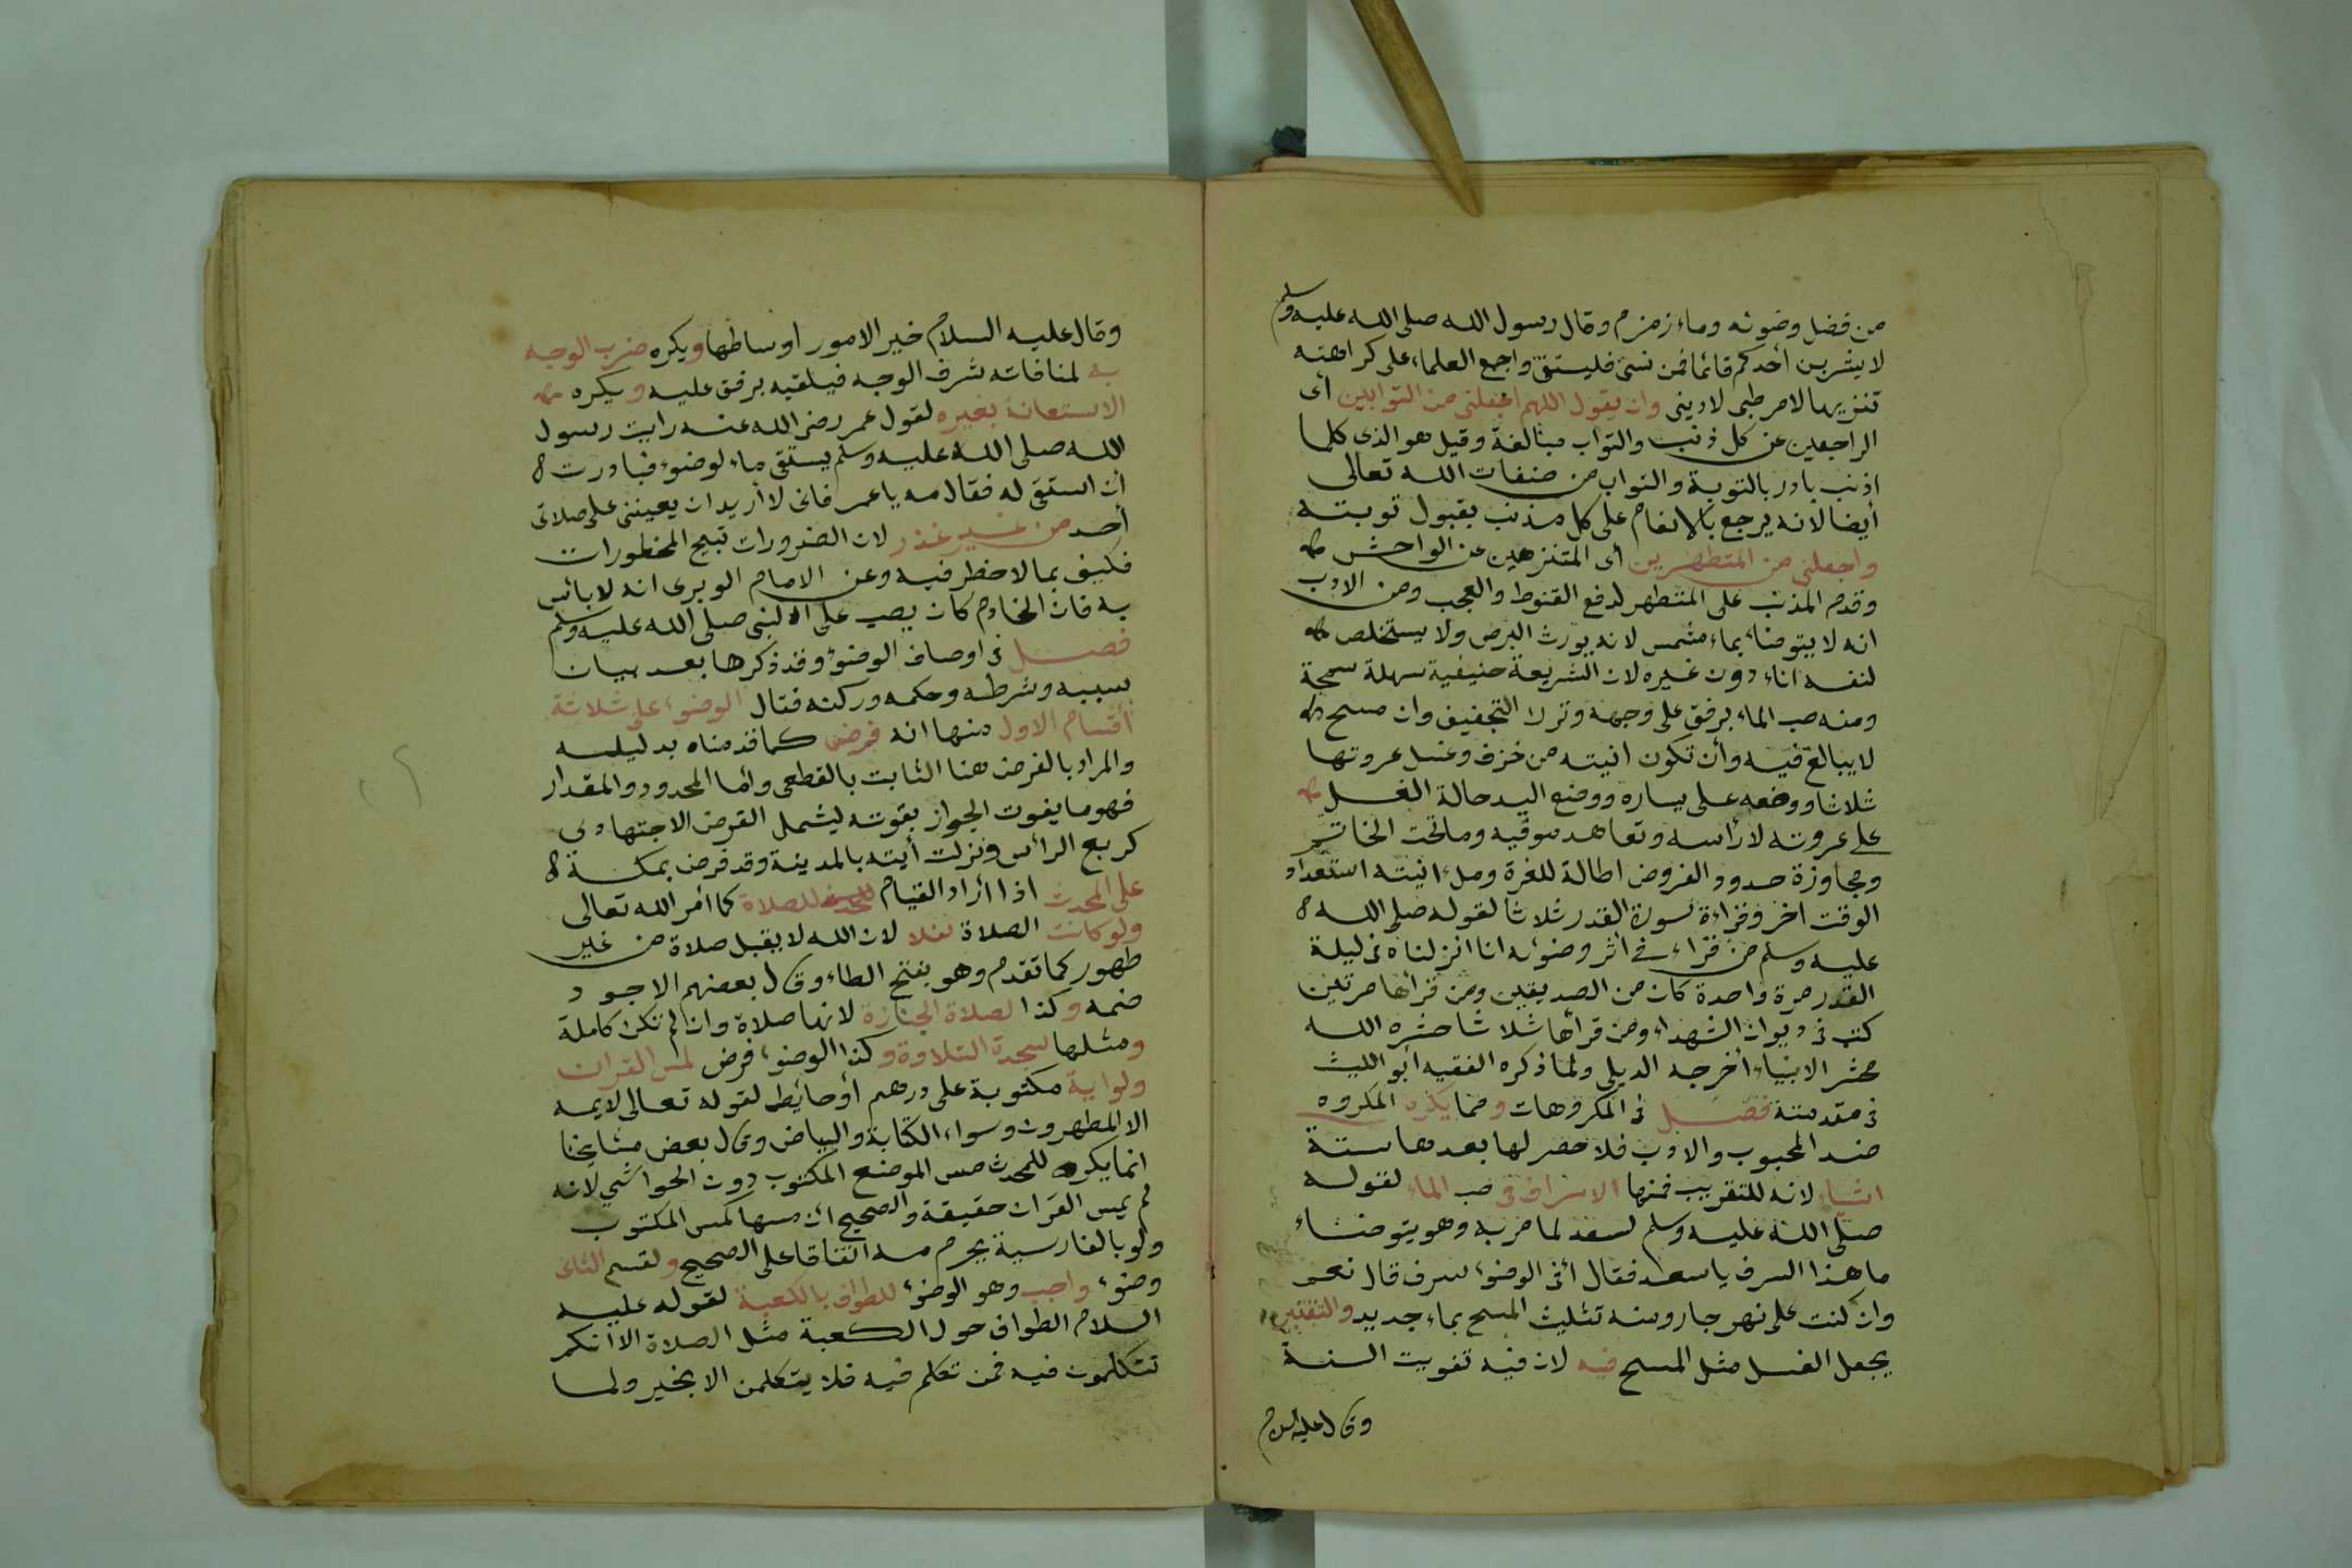 من فضل وضوئه وماء زمزم وقال رسول الله صلى الله عليه وسلم
لا يشربن أحدكم قائما فمن نسى فليستق واجمع العلماء على كراهته
تنزيها لامر طبى لا دينى وان يقول اللهم اجعلنى من التوابين أى
الراجعين عن كل ذنب والتواب مبالغة وقيل هو الذى كلما
اذنب بادر بالتوبة والتواب من صفات الله تعالى
أيضا لانه يرجع بالانعام على كل مذنب بقبول توبته
واجعلنى من المتطهرين أى المتنزهين عن الواحش
وقدم المذنب على المتطهر لدفع القنوط والعجب ومن الادب
انه لا يتوضاء بماء مشمس لانه يورث البرص ولا يستخلص
لنفسه اناء دون غيره لان الشريعة حنيفية سهلة سمحة
ومنه صب الماء برفق على وجهه وترك التجفيف وان مسح
لا يبالغ فيه وأن تكون انيته من خزف وغسل عروتها
ثلاثا ووضعه على يساره ووضع اليد حالة الغسل
على عروته لا رأسه وتعاهد موقيه وما تحت الخاتم
ومجاوزة حدود الفروض اطالة للغرة وملء انيته استعداد
الوقت اخر وقراءة سورة القدر ثلاثا لقوله صلى الله
عليه وسلم من قراء فى اثر وضوئه انا انزلناه فى ليلة
القدر مرة واحدة كان من الصديقين ومن قرأها مرتين
كتب فى ديوان الشهداء ومن قرأها ثلاثا حشره الله
محشر الانبياء أخرجه الديلى ولما ذكره الفقيه أبو الليث
فى مقدمته فصل فى المكروهات ومما يكره المكروه
ضد المحبوب والادب فلا حصر لها بعدها ستة
اشياء لانه للتقريب فمنها الاسراف فى صب الماء لقوله
صلى الله عليه وسلم لسعد لما مر به وهو يتوضاء
ما هذا السرف يا سعد فقال أفى الوضوء سرف قال نعم
وان كنت على نهر جار ومنه تثليث المسح بماء جديد والتقتير
يجعل الغسل مثل المسح فيه لان فيه تفويت السنة
وقال عليه السلام
وقال عليه السلام خير الامور اوساطها ويكره ضرب الوجه
به لمنافاته شرف الوجه فيلقيه برفق عليه ويكره
الاستعانة بغيره لقول عمر رضى الله عنه رايت رسول
الله صلى الله عليه وسلم يستقى ماء لوضوء فبادرت
أن استقى له فقال مه يا عمر فانى لا أريد ان يعيننى على صلاتى
أحد من غير عذر لان الضرورات تبيح المحظورات
فكيف بما لا حظر فيه وعن الامام الوبرى انه لا بائس
به فان الخادم كان يصب على النبى صلى الله عليه وسلم
فصل فى اوصاف الوضوء وقد ذكرها بعد بيان
سببه وشرطه وحكمه وركنه فقال الوضوء على ثلاثة
أقسام الاول منها انه فرض كما قدمناه بدليله
والمراد بالفرض هنا الثابت بالقطعى وأما المحدود والمقدار
فهو ما يفوت الجواز بفوته ليشمل الفرض الاجتهادى
كربع الرأس ونزلت أيته بالمدينة وقد فرض بمكة
على المحدث اذا اراد القيام للصلاة كما أمر الله تعالى
ولو كانت الصلاة نفلا لان الله لا يقبل صلاة من غير
طهور كما تقدم وهو بفتح الطاء وقال بعضهم الاجود
ضمه وكذا لصلاة الجنازة لانها صلاة وان لم تكن كاملة
ومثلها سجدة التلاوة وكذا الوضوء فرض لمس القران
ولو اية مكتوبة على درهم أو حائط لقوله تعالى لا يمسه
الا المطهرون وسواء الكتابة والبياض وقال بعض مشايخنا
انما يكره للمحدث مس الموضع المكتوب دون الحواشى لانه
لم يمس القران حقيقة والصحيح ان مسها كمس المكتوب
ولو بالفارسية يحرم مسه اتفاقا على الصحيح ولقسم الثانى
وضوء واجب وهو الوضوء للطواف بالكعبة لقوله عليه
السلام الطواف حول الكعبة مثل الصلاة الا انكم
تتكلمون فيه فمن تكلم فيه فلا يتكلمن الا بخير ولما